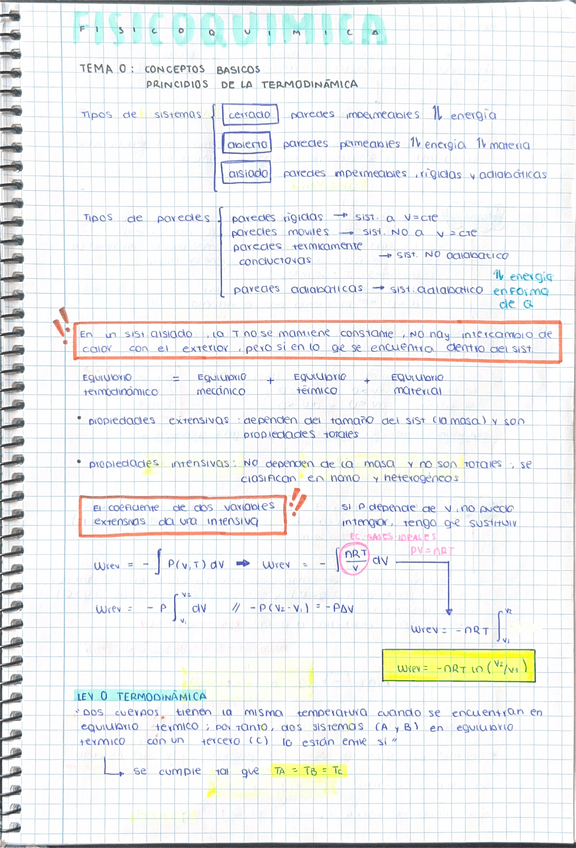 FISICOQUIMICA
TEMA 0: CONCEPTOS BASICOS
PRINCIPIOS DE LA TERMODINÁMICA
Tipos de sistemas
cerrado paredes impermeables ⇅ energía
abierto paredes permeables ⇅ energía ⇅ materia
aislado paredes impermeables, rígidas y adiabáticas
Tipos de paredes
paredes rígidas → sist. a V=cte
paredes moviles → sist. NO a V=cte
paredes termicamente
conductoras → sist. NO adiabatico
paredes adiabaticas → sist. adiabatico
⇅ energia
en forma
de Q
!! En un sist. aislado, la T no se mantiene constante, NO hay intercambio de
calor con el exterior, pero si en lo qe se encuentra dentro del sist.
Equilibrio = Equilibrio + Equilibrio + Equilibrio
termodinámico mecánico térmico material
• propiedades extensivas: dependen del tamaño del sist (la masa) y son
propiedades totales
• propiedades intensivas: NO dependen de la masa y no son totales, se
clasifican en homo y heterogéneos
El coeficiente de dos variables
extensivas da una intensiva !!
si P depende de V, no puedo
integrar, tengo qe sustituir
EC. GASES IDEALES
PV=nRT
Wrev = - ∫ P(V,T) dV ➡ Wrev = - ∫ nRT/V dV
Wrev = - P ∫V1V2 dV // -P(V2-V1) = -PΔV
Wrev = -nRT ∫V1V2
Wrev = -nRT ln (V2/V1)
LEY 0 TERMODINÁMICA
"Dos cuerpos tienen la misma temperatura cuando se encuentran en
equilibrio térmico; por tanto, dos sistemas (A y B) en equilibrio
térmico con un tercero (C) lo están entre sí"
↳ se cumple tal que TA = TB = TC